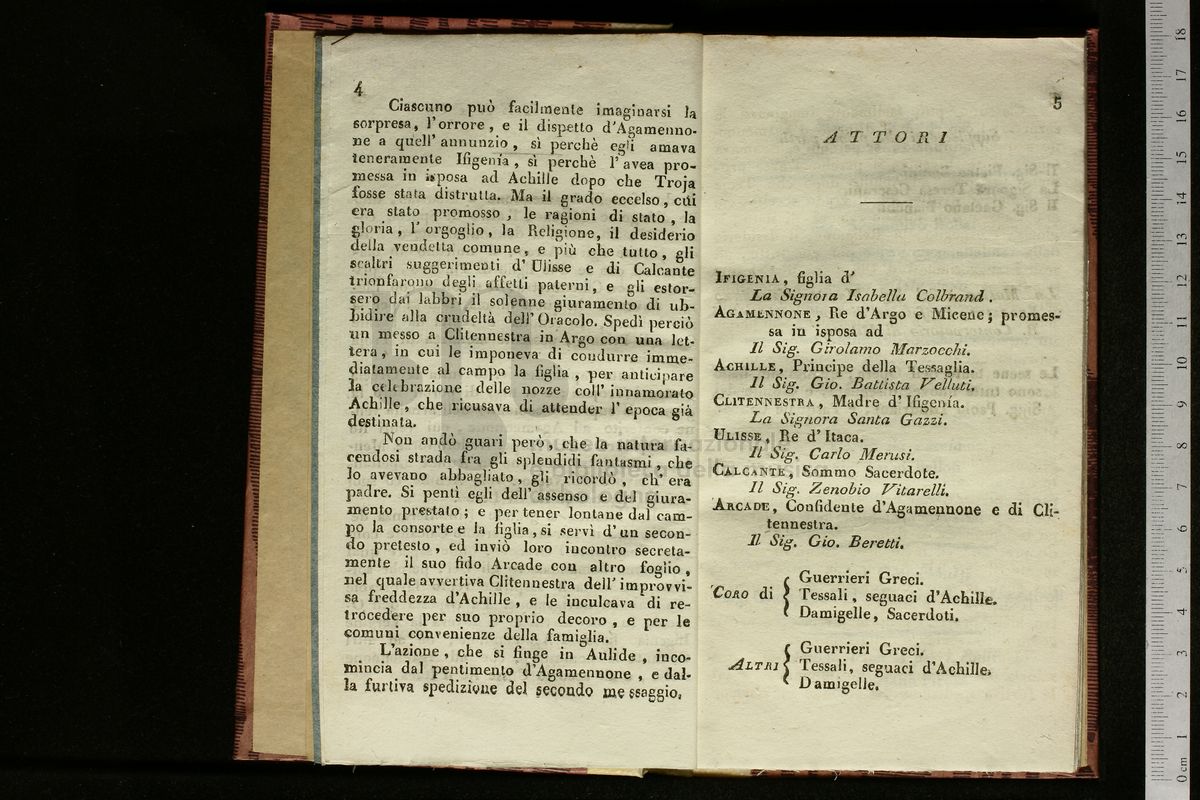 4
Ciascuno può facilmente imaginarsi la
sorpresa, l'orrore, e il dispetto d'Agamenno-
ne a quell' annunzio, sì perchè egli amava
teneramente Ifigenía, sì perchè l' avea pro-
messa in isposa ad Achille dopo che Troja
fosse stata distrutta. Ma il grado eccelso, cui
era stato promosso, le ragioni di stato, la
gloria, l' orgoglio, la Religione, il desiderio
della vendetta comune, e più che tutto, gli
scaltri suggerimenti d' Ulisse e di Calcante
trionfarono degli affetti paterni, e gli estor-
sero dai labbri il solenne giuramento di ub-
bidire alla crudeltà dell' Oracolo. Spedì perciò
un messo a Clitennestra in Argo con una let-
tera, in cui le imponeva di condurre imme-
diatamente al campo la figlia, per anticipare
la celebrazione delle nozze coll' innamorato
Achille, che ricusava di attender l' epoca già
destinata.
Non andò guari però, che la natura fa-
cendosi strada fra gli splendidi fantasmi, che
lo avevano abbagliato, gli ricordò, ch' era
padre. Si pentì egli dell' assenso e del giura-
mento prestato; e per tener lontane dal cam-
po la consorte e la figlia, si servì d' un secon-
do pretesto, ed inviò loro incontro secreta-
mente il suo fido Arcade con altro foglio,
nel quale avvertiva Clitennestra dell' improvvi-
sa freddezza d'Achille, e le inculcava di re-
trocedere per suo proprio decoro, e per le
comuni convenienze della famiglia.
L'azione, che si finge in Aulide, inco-
mincia dal pentimento d'Agamennone, e dal-
la furtiva spedizione del secondo messaggio.
5
ATTORI
IFIGENIA, figlia d'
La Signora Isabella Colbrand.
AGAMENNONE, Re d'Argo e Micene; promes-
sa in isposa ad
Il Sig. Girolamo Marzocchi.
ACHILLE, Principe della Tessaglia.
Il Sig. Gio. Battista Velluti.
CLITENNESTRA, Madre d' Ifigenía.
La Signora Santa Gazzi.
ULISSE, Re d' Itaca.
Il Sig. Carlo Merusi.
CALCANTE, Sommo Sacerdote.
Il Sig. Zenobio Vitarelli.
ARCADE, Confidente d'Agamennone e di Cli-
tennestra.
Il Sig. Gio. Beretti.
CORO di
Guerrieri Greci.
Tessali, seguaci d'Achille.
Damigelle, Sacerdoti.
ALTRI
Guerrieri Greci.
Tessali, seguaci d'Achille.
Damigelle.
0 cm 1 2 3 4 5 6 7 8 9 10 11 12 13 14 15 16 17 18